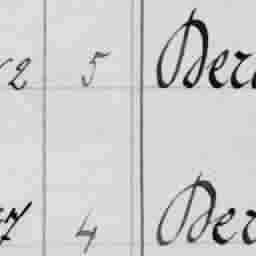 2 5 Der
7 4 Der